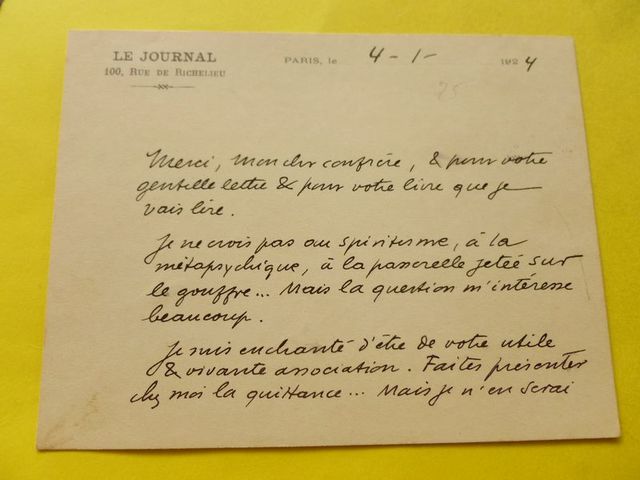 LE JOURNAL
100, RUE DE RICHELIEU
PARIS, le 4-1- 1924
25
Merci, mon cher confrère, & pour votre
gentille lettre & pour votre livre que je
vais lire.
Je ne crois pas au spiritisme, à la
métapsychique, à la passerelle jetée sur
le gouffre... Mais la question m'intéresse
beaucoup.
Je suis enchanté d'être de votre utile
& vivante association. Faites présenter
chez moi la quittance... Mais je n'en serai